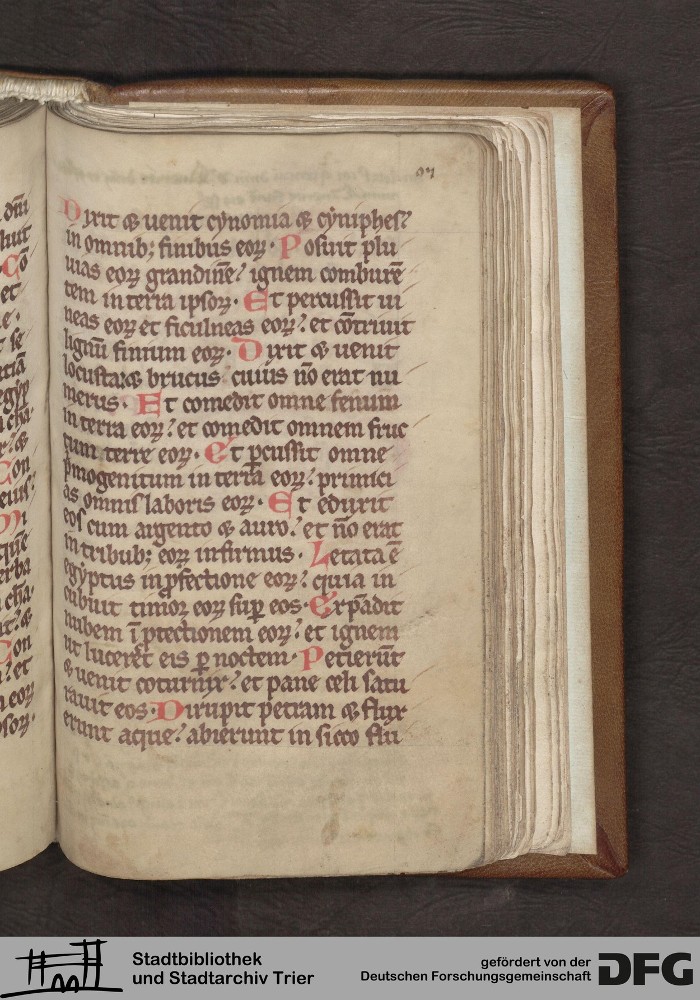 97
Dixit & uenit cynomia & cyniphes?
in omnib; finibus eoꝝ· Posuit plu
uias eoꝝ grandinē? ignem combure̅
tem in terra ipsoꝝ· Et percussit ui
neas eoꝝ et ficulneas eoꝝ? et co̅triuit
lignu̅ finium eoꝝ· Dixit & uenit
locusta & brucus? cuius no̅ erat nu
merus· Et comedit omne fenum
in terra eoꝝ? et comedit omnem fruc
tum terre eoꝝ· Et ꝑcussit omne
p̅mogenitum in terra eoꝝ? primici
as omnis laboris eoꝝ· Et eduxit
eos cum argento & auro? et no̅ erat
in tribub; eoꝝ infirmus· Letata e̅
egyptus in ꝓfectione eoꝝ? quia in
cubuit timor eoꝝ suꝑ eos· Expa̅dit
nubem i̅ ꝓtectionem eoꝝ? et ignem
ut luceret eis ꝑ noctem· Petieru̅t
& uenit coturnix? et pane celi satu
rauit eos· Dirupit petram & flux
erunt aque? abierunt in sicco flu
dn̅i
Co̅
et
se
egyp
Con
eius
Mi
que
erba
Con
et
eoꝝ
Stadtbibliothek
und Stadtarchiv Trier
gefördert von der
Deutschen Forschungsgemeinschaft
DFG